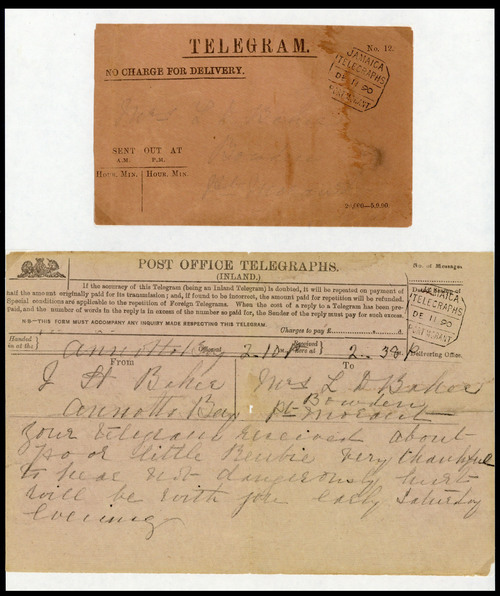 TELEGRAM.
No. 12.
NO CHARGE FOR DELIVERY.
JAMAICA
TELEGRAPHS
DE 11 90
SENT OUT AT
A.M. P.M.
HOUR. MIN. HOUR. MIN.
POST OFFICE TELEGRAPHS.
(INLAND.)
No. of Message
If the accuracy of this Telegram (being an Inland Telegram) is doubted, it will be repeated on payment of
half the amount originally paid for its transmission; and, if found to be incorrect, the amount paid for repetition will be refunded.
Special conditions are applicable to the repetition of Foreign Telegrams. When the cost of a reply to a Telegram has been pre-
paid, and the number of words in the reply is in excess of the number so paid for, the Sender of the reply must pay for such excess.
JAMAICA
TELEGRAPHS
DE 11 90
NB—THIS FORM MUST ACCOMPANY ANY INQUIRY MADE RESPECTING THIS TELEGRAM.
Charges to pay £ s. d.
Handed in at the Annotto Bay 2.10 Received here at 2.38 Delivering Office.
From To
J H Baker Mrs L D Baker
Annotto Bay Bowden
Pt Morant
your telegram received about
poor little Reubie very thankful
to hear not dangerously hurt
will be with you early Saturday
evening